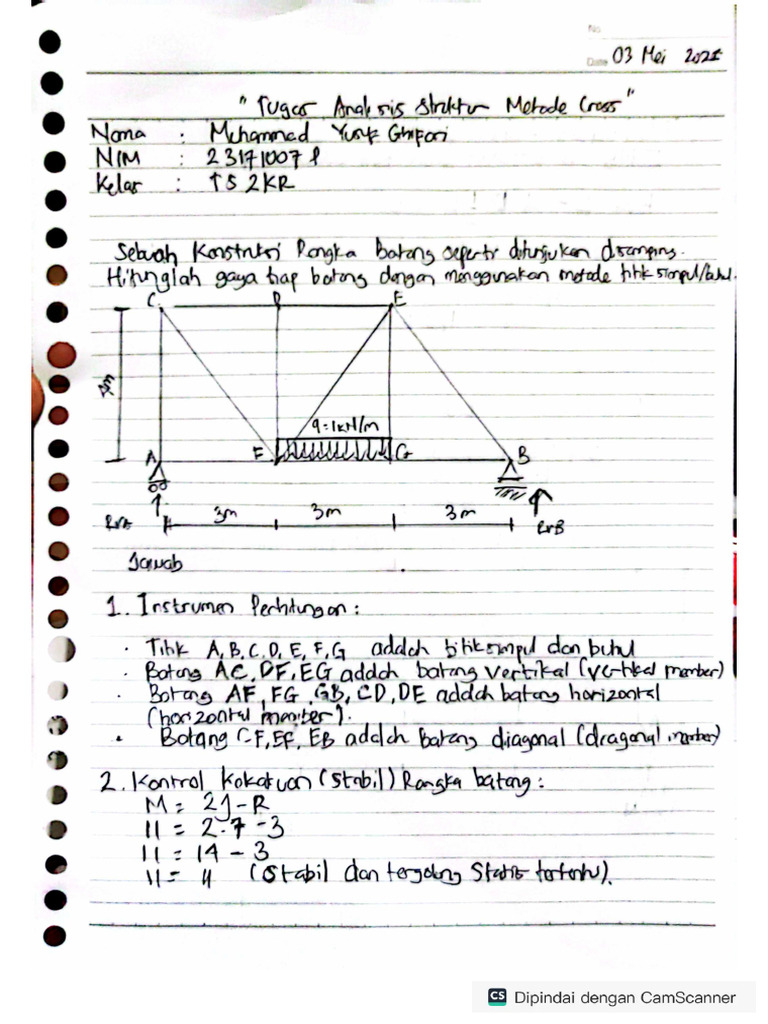 No
Date 03 Mei 2025
" Tugas Analisis Struktur Metode Cross "
Nama : Muhammad Yusuf Ghifari
NIM : 23171007 P
Kelas : TS 2KR
Sebuah Konstruksi Rangka Batang seperti ditunjukan disamping.
Hitunglah gaya tiap batang dengan menggunakan metode titik simpul/buhul.
C D E
q=1kN/m
A F G B
3m 3m 3m
RvA RvB
Jawab
1. Instrumen Perhitungan :
· Titik A, B, C, D, E, F, G adalah titik simpul dan buhul
· Batang AC, DF, EG adalah batang vertikal (vertikal member)
· Batang AF, FG, GB, CD, DE adalah batang horizontal
(horizontal member).
· Batang CF, EF, EB adalah batang diagonal (diagonal member)
2. Kontrol Kekakuan (Stabil) Rangka batang :
M = 2J - R
11 = 2.7 - 3
11 = 14 - 3
11 = 11 (Stabil dan tergolong Statis tertentu).
CS Dipindai dengan CamScanner